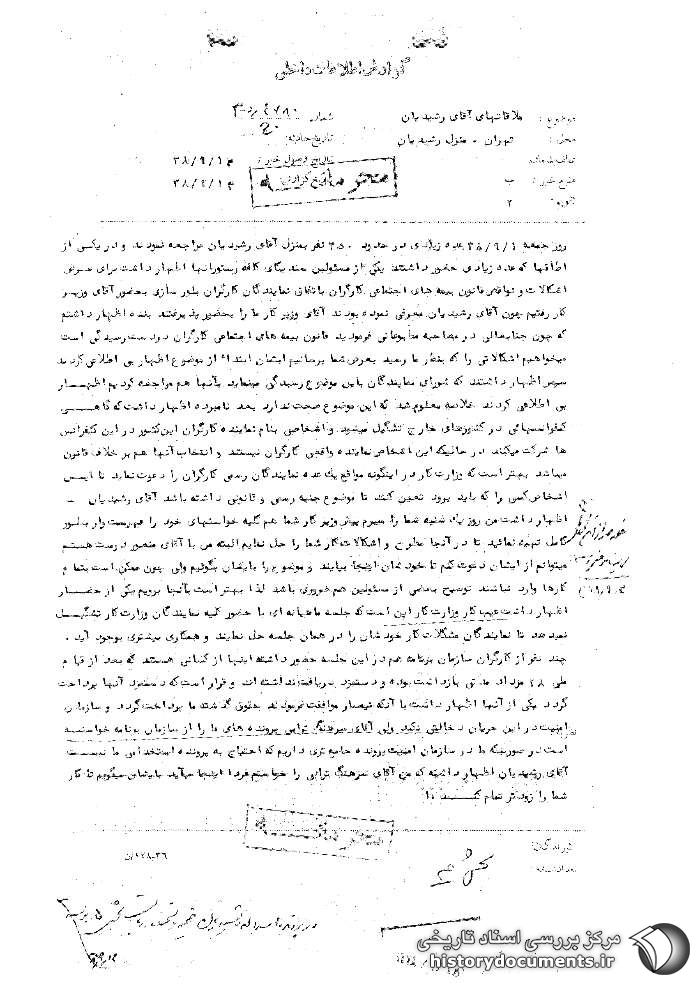 گزارش اطلاعات داخلی
موضوع : ملاقاتهای آقای رشیدیان شماره
محل : تهران - منزل رشیدیان تاریخ حادثه:
تاریخ وصول خبر : ۳۸/۹/۱
منبع خبر : ب تاریخ گزارش ۳۸/۹/۱
تقویم : ۲
روز جمعه ۳۸/۹/۱ عده زیادی در حدود ۳۵۰ نفر بمنزل آقای رشیدیان مراجعه نمودند و در یکی از
اطاقها که عده زیادی حضور داشتند یکی از مسئولین سندیکای کافه رستورانها اظهار داشت برای
اشکالات و نواقص قانون بیمه های اجتماعی کارگران باتفاق نمایندگان کارگران بلور سازی بحضور آقای وزیر
کار رفتیم چون آقای رشیدیان معرفی نموده بودند آقای وزیر کار ما را بحضور پذیرفتند بنده اظهار داشتم
که چون جنابعالی در مصاحبه مطبوعاتی فرمودید قانون بیمه های اجتماعی کارگران در دست رسیدگی است
میخواهیم اشکالاتی را که بنظر ما رسید بعرض شما برسانیم ایشان ابتدا از موضوع اظهار بی اطلاعی کردند
سپس اظهار داشتند که شورای نمایندگان باین موضوع رسیدگی مینماید بآنها هم مراجعه کردیم اظهار
بی اطلاعی کردند خلاصه معلوم شد که این موضوع صحت ندارد بعد نامبرده اظهار داشت که گاهی
کنفرانسهایی در کشورهای خارج تشکیل میشود و اشخاصی بنام نماینده کارگران این کشور در این کنفرانس
ها شرکت میکنند در حالیکه این اشخاص نماینده واقعی کارگران نیستند و انتخاب آنها هم بر خلاف قانون
میباشد بهتر است که وزارت کار در اینگونه مواقع یک عده نمایندگان رسمی کارگران را دعوت نماید تا ایشان
اشخاص کسی را که باید برود تعیین کنند تا موضوع جنبه رسمی و قانونی داشته باشد آقای رشیدیان -
اظهار داشت من روز یک شنبه شما را میبرم پیش وزیر کار شما هم کلیه خواستهای خود را فهرست وار بطور
کامل تهیه نمائید تا در آنجا مطرح و اشکالات کار شما را حل نمایم البته من با آقای منصور دوست هستم
میتوانم از ایشان دعوت کنم تا خودشان اینجا بیایند و موضوع را بایشان بگوئیم ولی چون ممکن است بتمام
کارها وارد نباشند توضیح بعضی از مسئولین هم ضروری باشد لذا بهتر است بآنجا برویم یکی از حضار
اظهار داشت عیب کار وزارت کار این است که جلسه ماهیانه ای با حضور کلیه نمایندگان وزارت کار تشکیل
نمیدهد تا نمایندگان مشکلات کار خودشان را در همان جلسه حل نمایند و همکاری بیشتری بوجود آید .
چند نفر از کارگران سازمان برنامه هم در این جلسه حضور داشته اینها از کسانی هستند که بعد از قیام
ملی ۲۸ مرداد مدتی بازداشت بوده و دستمزد دریافت نداشته اند و قرار است که دستمزد آنها پرداخت
گردد یکی از آنها اظهار داشت با آنکه تیمسار موافقت فرمودند حقوق گذشته ما پرداخت گردد و سازمان
امنیت در این جریان دخالتی نکند ولی آقای سرهنگ ترابی پرونده های ما را از سازمان برنامه خواسته
است در صورتیکه ما در سازمان امنیت پرونده جامع تری داریم که احتیاج به پرونده استخدامی ما نیست
آقای رشیدیان اظهار داشته که من آقای سرهنگ ترابی را خواستم فردا اینجا میآید بایشان میگویم تا کار
شما را زودتر تمام کند
گیرندگان:
تعداد نسخه
مرکز بررسی اسناد تاریخی
historydocuments.ir